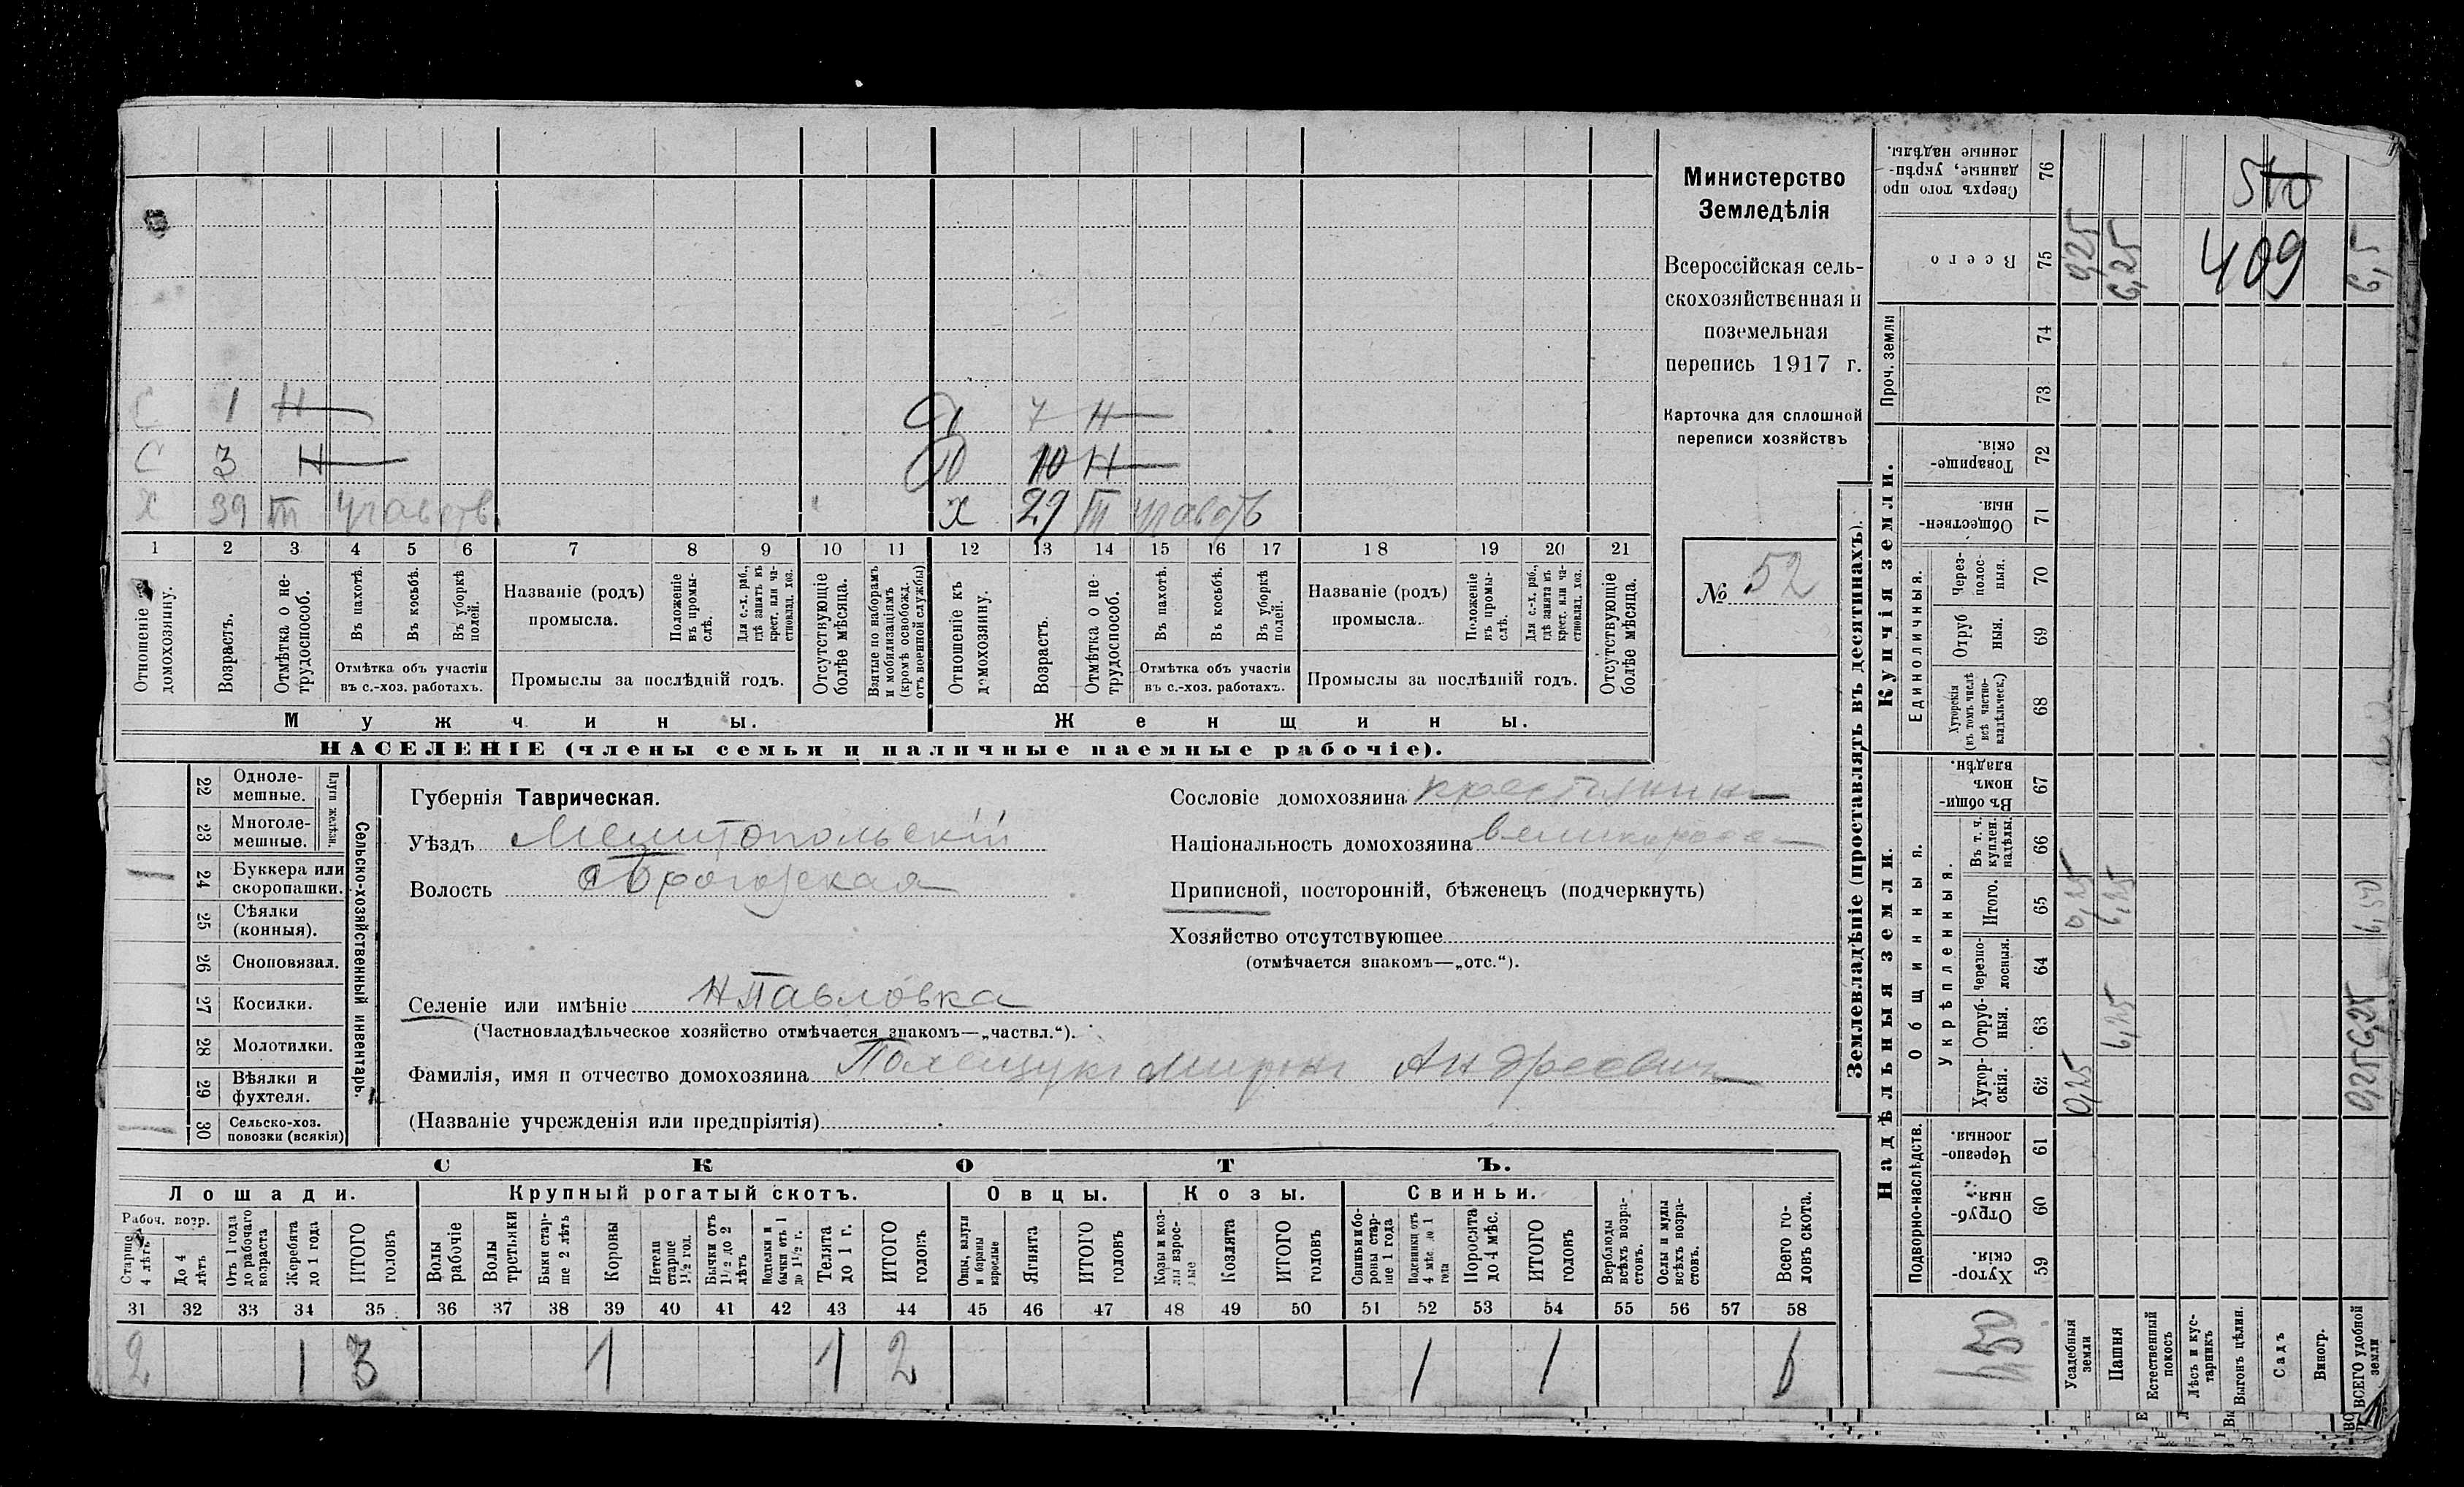 С 1 Н Д 7 Н
С 3 Н Д 10 Н
Х 39 Х 29
1 2 3 4 5 6 7 8 9 10 11 12 13 14 15 16 17 18 19 20 21
Отношеніе къ домохозяину.
Возрастъ.
Отмѣтка о не-
трудоспособ.
Въ пахотѣ.
Въ косьбѣ.
Въ уборкѣ
полей.
Отмѣтка объ участіи
въ с.-хоз. работахъ.
Названіе (родъ)
промысла.
Положеніе
въ промы-
слѣ.
Для с.-х. раб.,
гдѣ занятъ въ
крест. или ча-
стновлад. хоз.
Промыслы за послѣдній годъ.
Отсутствующіе
болѣе мѣсяца.
Взятые по наборамъ
и мобилизаціямъ
(кромѣ освобожд.
отъ военной службы)
Отношеніе къ
домохозяину.
Возрастъ.
Отмѣтка о не-
трудоспособ.
Въ пахотѣ.
Въ косьбѣ.
Въ уборкѣ
полей.
Отмѣтка объ участіи
въ с.-хоз. работахъ.
Названіе (родъ)
промысла.
Положеніе
въ промы-
слѣ.
Для с.-х. раб.,
гдѣ занята въ
крест. или ча-
стновлад. хоз.
Промыслы за послѣдній годъ.
Отсутствующіе
болѣе мѣсяца.
Мужчины.
Женщины.
НАСЕЛЕНІЕ (члены семьи и наличные наемные рабочіе).
Министерство
Земледѣлія
Всероссійская сель-
скохозяйственная и
поземельная
перепись 1917 г.
Карточка для сплошной
переписи хозяйствъ
№ 52
22 Одноле-
мешные.
23 Многоле-
мешные.
Плуги желѣзн.
24 Буккера или
скоропашки.
25 Сѣялки
(конныя).
26 Сноповязал.
27 Косилки.
28 Молотилки.
29 Вѣялки и
фухтеля.
30 Сельско-хоз.
повозки (всякія)
Сельско-хозяйственный инвентарь.
Губернія Таврическая.
Уѣздъ Мелитопольскій
Волость
Селеніе или имѣніе НПавловка
(Частновладѣльческое хозяйство отмѣчается знакомъ—„частвл.“).
Фамилія, имя и отчество домохозяина Полещукъ Миронъ Андреевичъ
(Названіе учрежденія или предпріятія)
Сословіе домохозяина крестьянинъ
Національность домохозяина великороссъ
Приписной, посторонній, бѣженецъ (подчеркнуть)
Хозяйство отсутствующее
(отмѣчается знакомъ—„отс.“).
СКОТЪ.
Лошади.
Рабоч. возр.
Старше
4 лѣтъ
До 4
лѣтъ
Отъ 1 года
до рабочаго
возраста
Жеребята
до 1 года
ИТОГО
головъ
Крупный рогатый скотъ.
Волы
рабочіе
Волы
третьяки
Быки стар-
ше 2 лѣтъ
Коровы
Нетели
старше
1½ год.
Бычки отъ
1½ до 2
лѣтъ
Подтелки и
бычки отъ 1
до 1½ г.
Телята
до 1 г.
ИТОГО
головъ
Овцы.
Овцы, валухи
и бараны
взрослые
Ягнята
ИТОГО
головъ
Козы.
Козы и коз-
лы взрос-
лые
Козлята
ИТОГО
головъ
Свиньи.
Свиньи и бо-
ровы стар-
ше 1 года
Подсвинки отъ
4 мѣс. до 1
года
Поросята
до 4 мѣс.
ИТОГО
головъ
Верблюды
всѣхъ возра-
стовъ.
Ослы и мулы
всѣхъ возра-
стовъ.
Всего го-
ловъ скота.
31 32 33 34 35 36 37 38 39 40 41 42 43 44 45 46 47 48 49 50 51 52 53 54 55 56 57 58
2 1 3 1 1 2 1 1 6
Землевладѣніе (проставлять въ десятинахъ).
Сверхъ того про
данные, укрѣп-
ленные надѣлы.
76
Всего
75 0,25 6,25 409 6,5
Проч. земли
74
73
Купчія земли.
Товарище-
скія.
72
Обществен-
ныя.
71
Единоличныя.
Через-
полос-
ныя.
70
Отруб
ныя.
69
Хуторскія
(въ томъ числѣ
всѣ частно-
владѣльческ.)
68
Надѣльныя земли.
Общинныя.
Въ общи-
номъ
владѣн.
67
Укрѣпленныя.
Въ т. ч.
куплен.
надѣлы.
66
Итого.
65 0,25 6,25 6,50
Черезпо-
лосныя.
64
Отруб-
ныя.
63 6,25 6,25
Хутор-
скія.
62 0,25 0,25
Подворно-наслѣдств.
Черезпо-
лосныя.
61
Отруб-
ныя.
60
Хутор-
скія.
59
Усадебныя
земли
Пашня
Естественный
покосъ
Лѣсъ и кус-
тарникъ
Выгонъ цѣлин.
Садъ
Виногр.
ВСЕГО удобной
земли